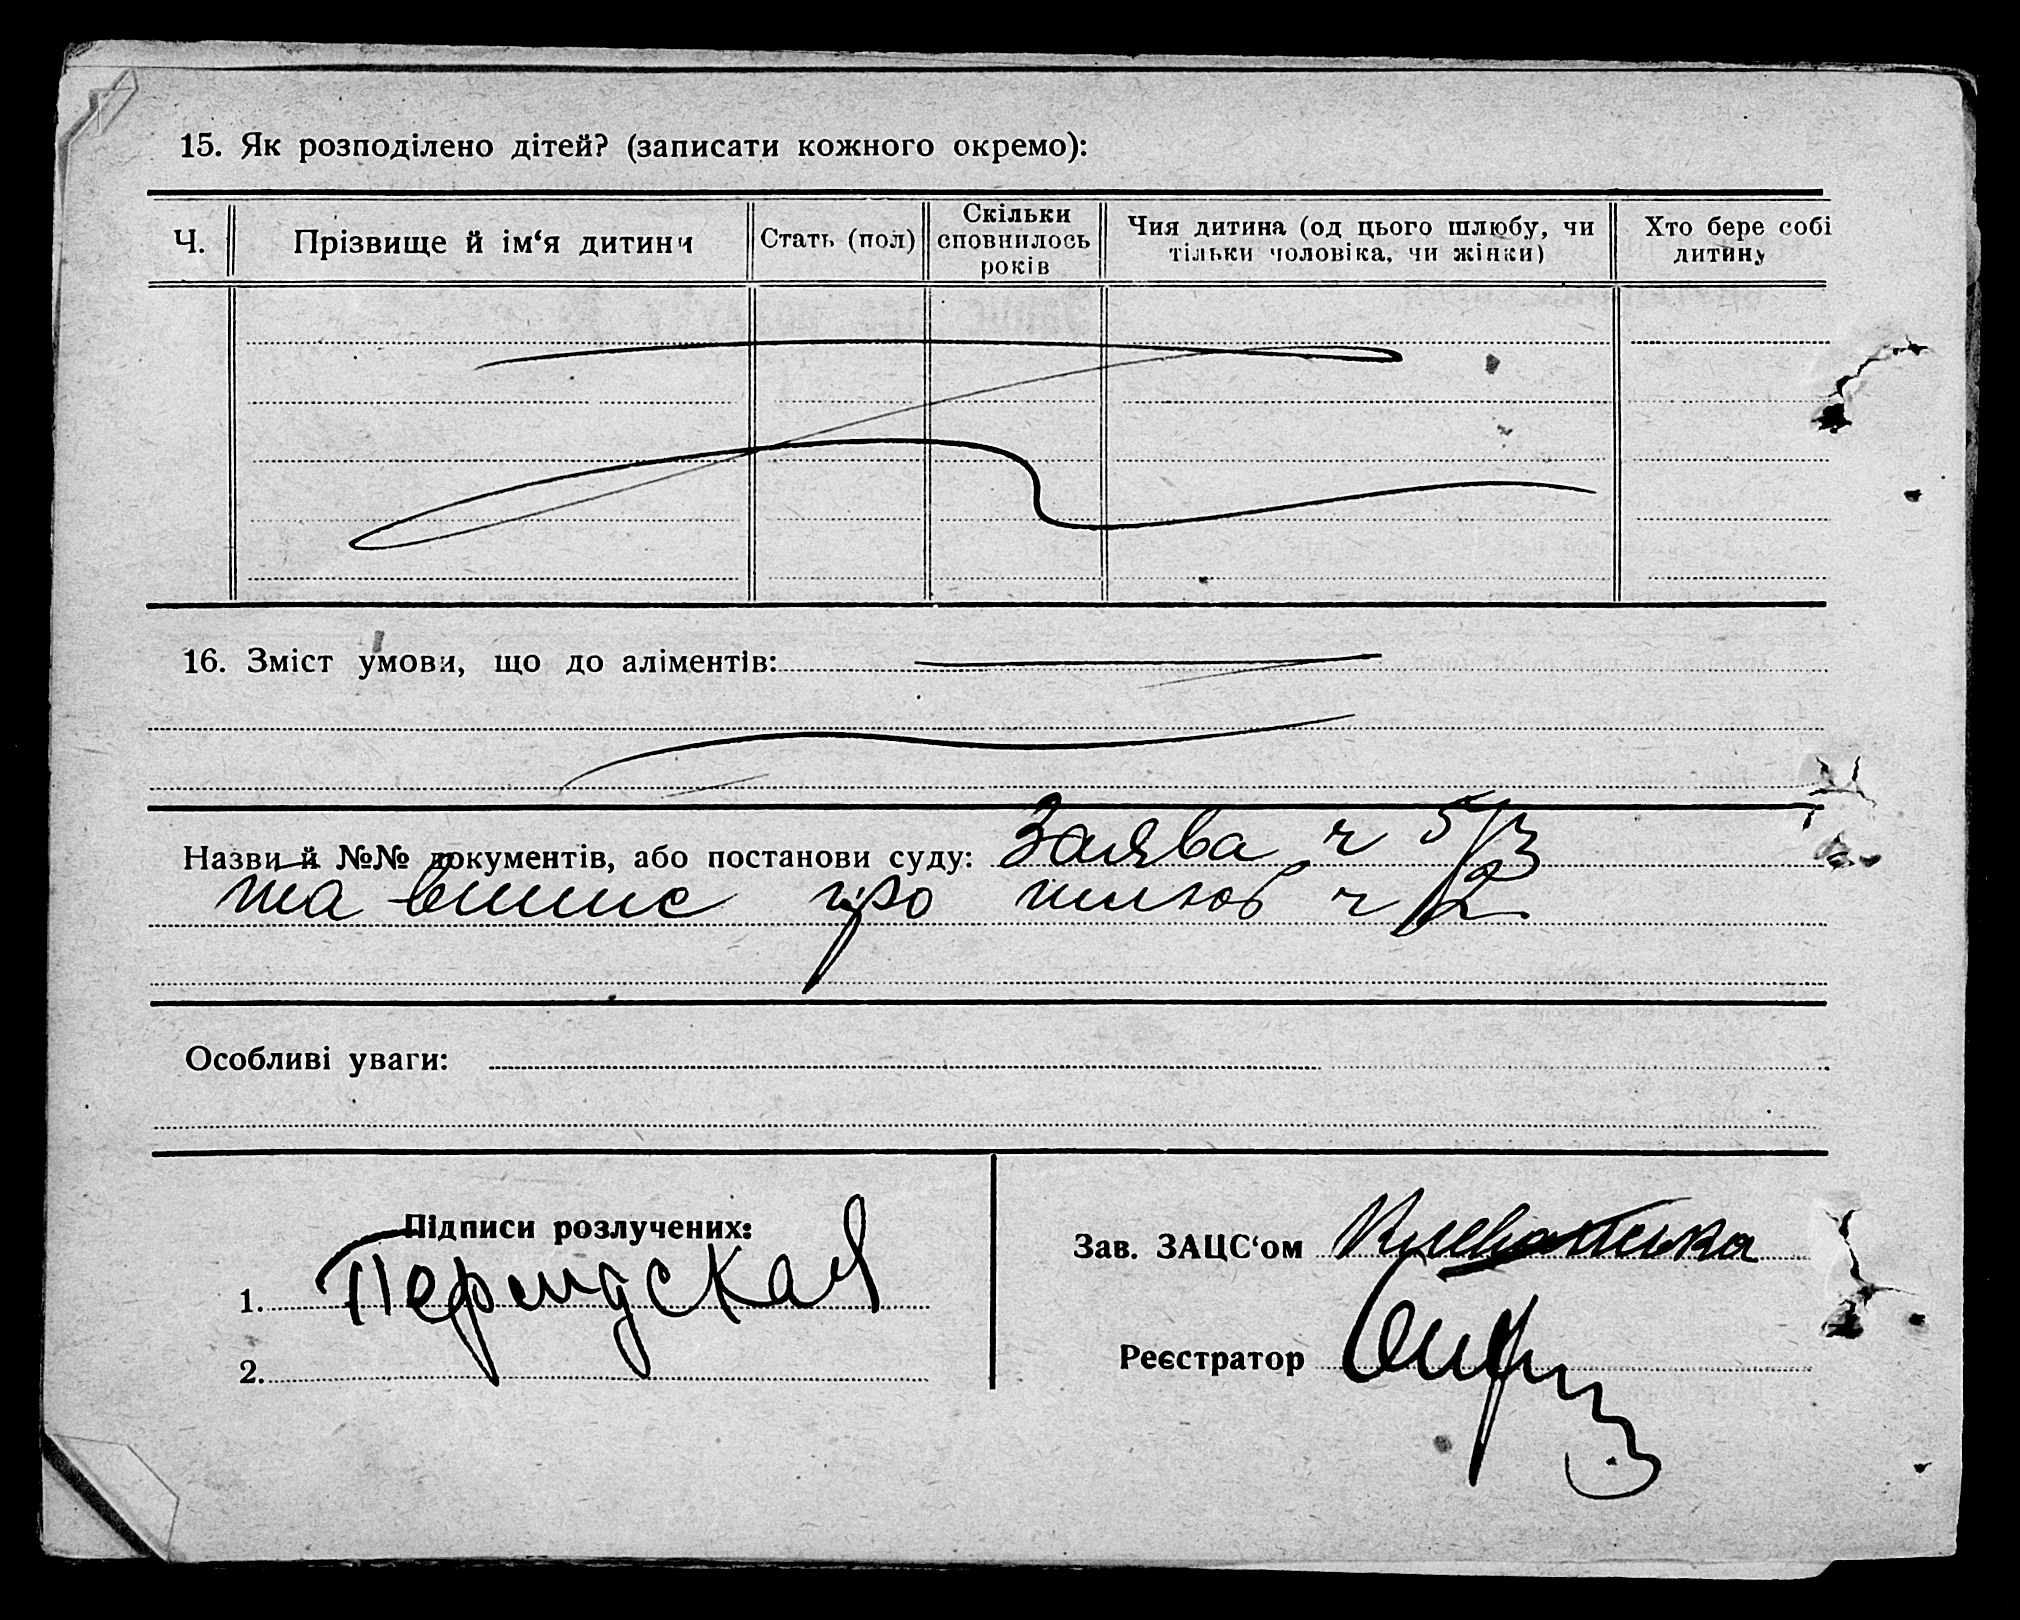 15. Як розподілено дітей? (записати кожного окремо):
Ч. Прізвище й ім‘я дитини Стать (пол) Скільки сповнилось років Чия дитина (од цього шлюбу, чи тільки чоловіка, чи жінки) Хто бере собі дитину
16. Зміст умови, що до аліментів:
Назви й №№ документів, або постанови суду: Заява ч 5/3
та випис про шлюб ч /2
Особливі уваги:
Підписи розлучених:
Зав. ЗАЦС‘ом
1.
Реєстратор
2.